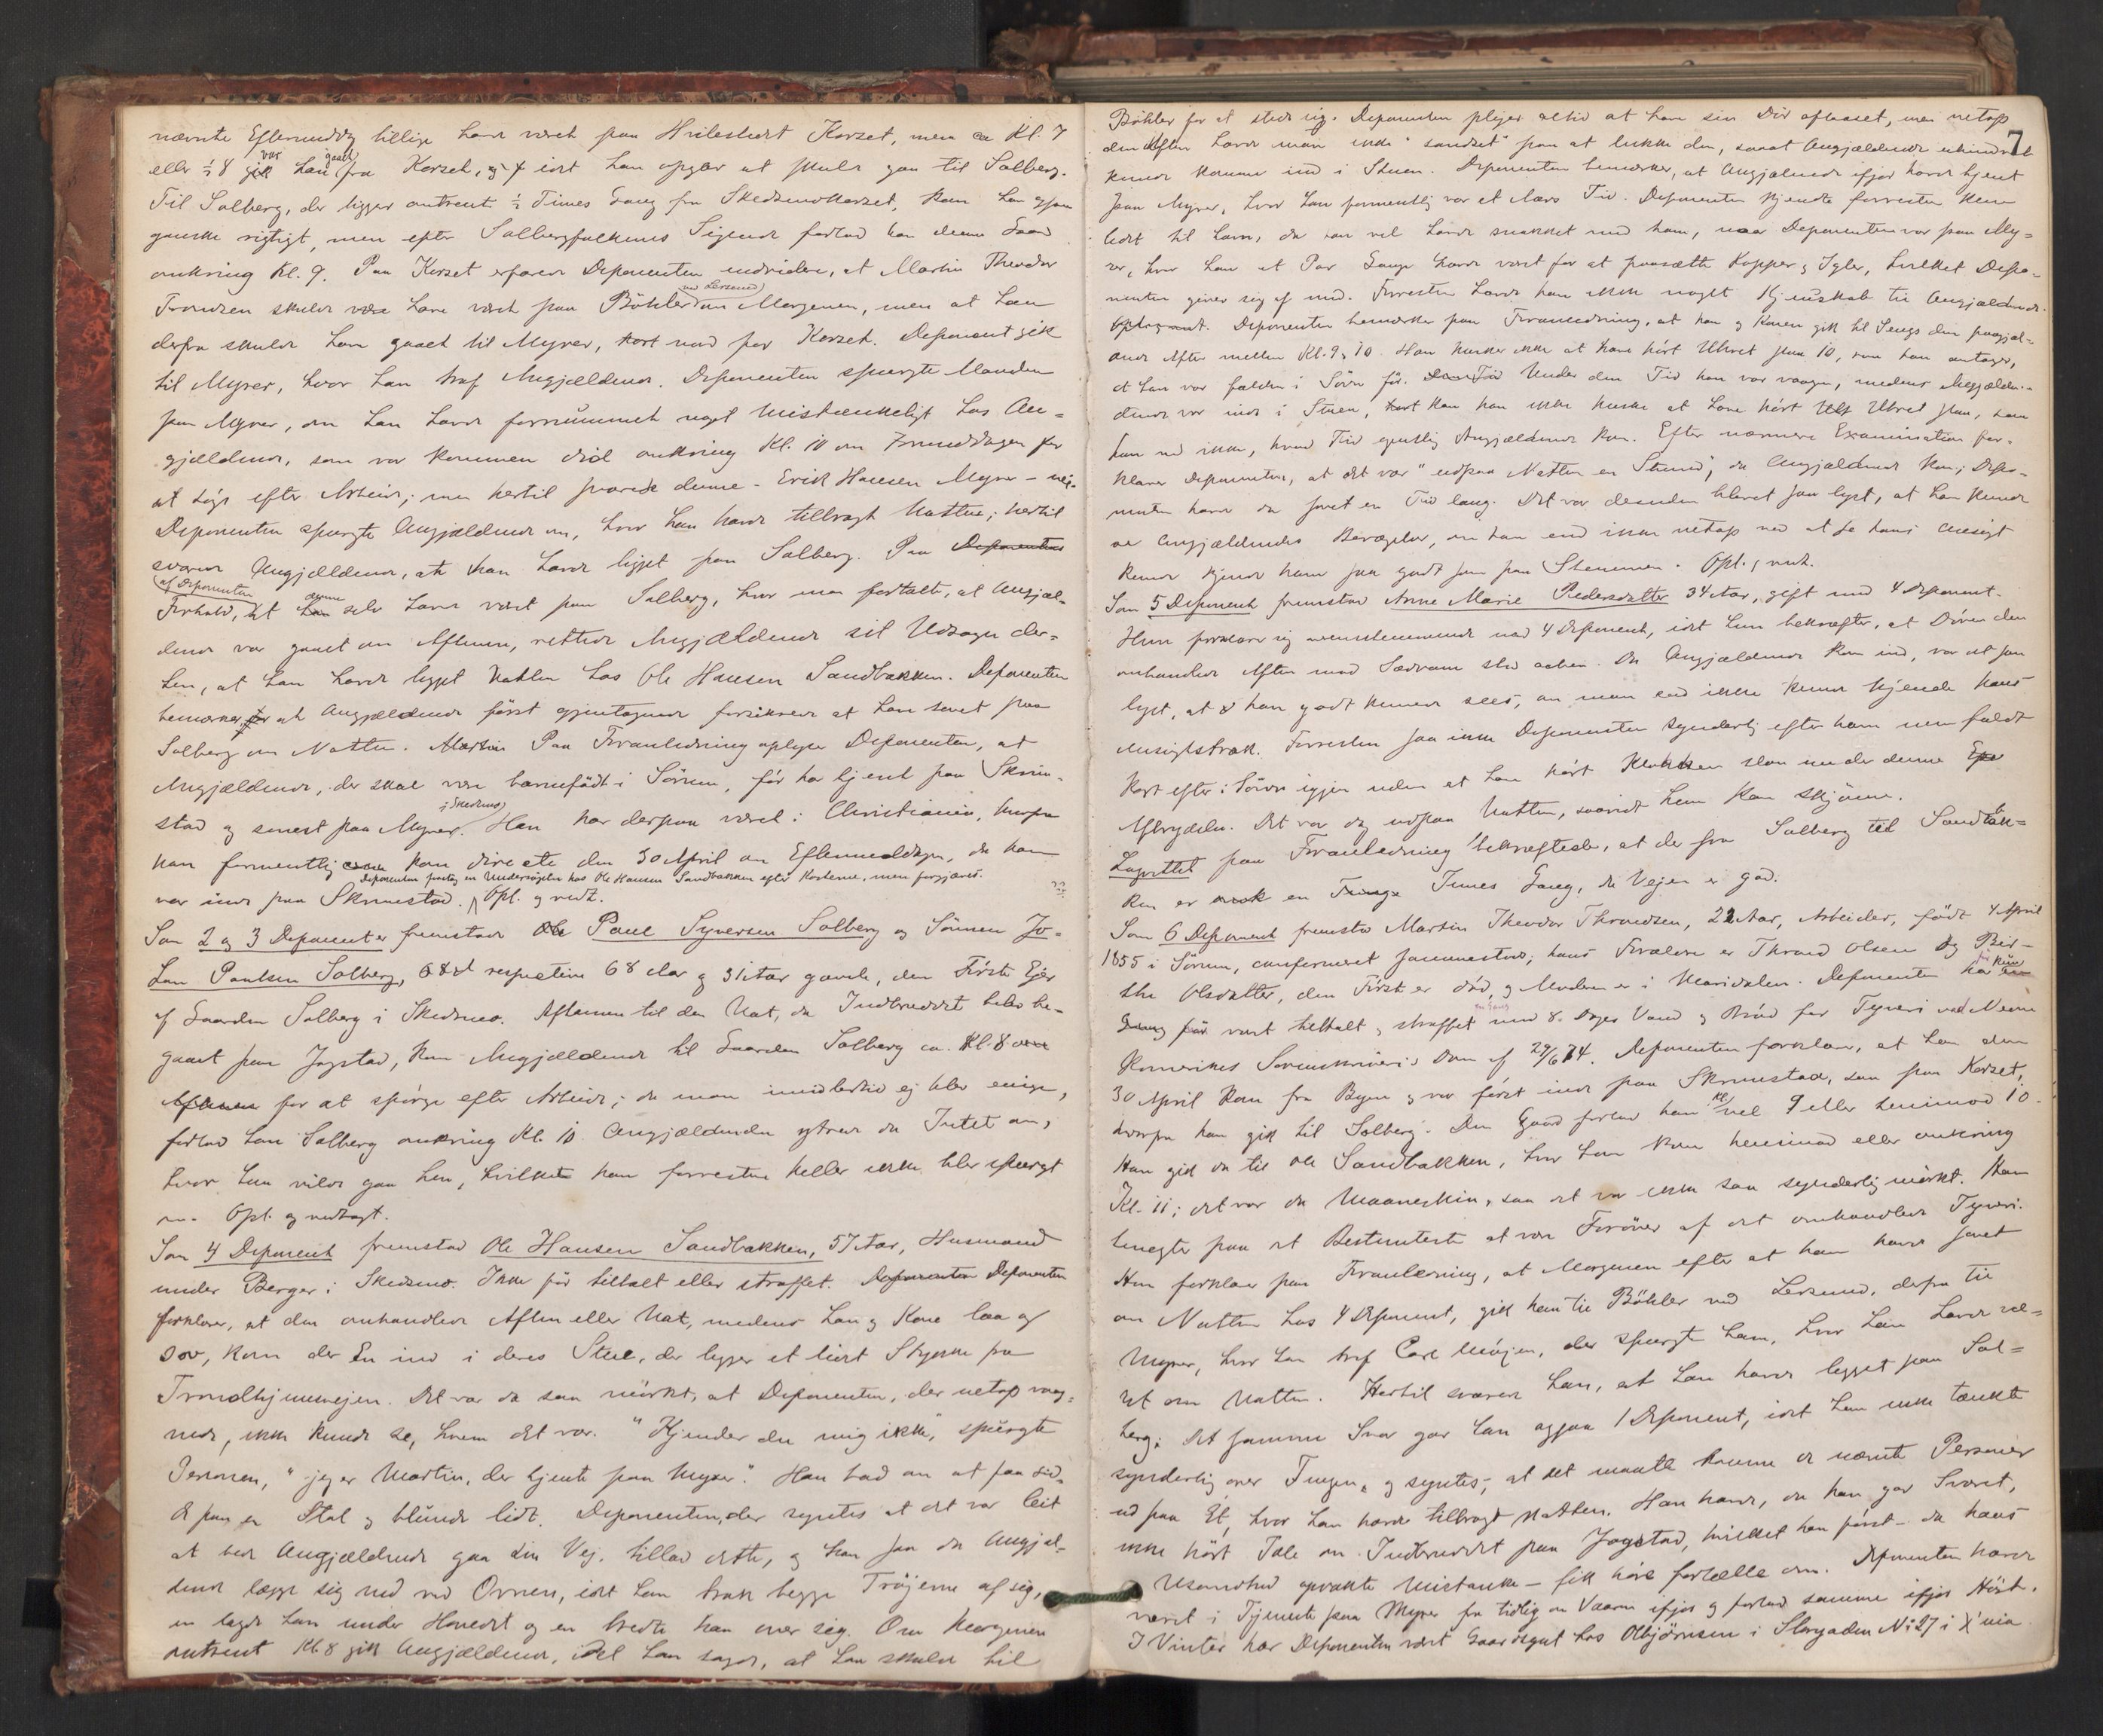 nævnte Eftermiddag tillige havde været paa Hvilestedet Korset, men ca Kl. 7
eller ½ 8 var han gaaet fra Korset, idet han opgav at skulle gaa til Solberg.
Til Solberg, der ligger omtrent ½ Times Gang fra Skedsmokorset, kom han ogsaa
ganske rigtigt, men efter Solbergfolkenes Sigende forlod han denne Gaard
omkring Kl. 9. Paa Korset erfarede Deponenten endvidere, at Martin Theodor
Trondsen skulde være have været paa Böhler ved Lersund om Morgenen, men at han
derfra skulde have gaaet til Myrer, kort ned for Korset. Deponent gik
til Myrer, hvor han traf Angjældende. Deponenten spurgte Manden
paa Myrer, om han havde fornummet noget mistænkeligt hos An-
gjældende, som var kommen did omkring Kl. 10 om Formiddagen for
at søge efter Arbeide; men hertil svarede denne - Erik Hansen Myrer - nei.
Deponenten spurgte Angjældende om, hvor han havde tilbragt Natten; hertil
svarede Angjældende, at han havde ligget paa Solberg. Paa Deponentens
af Deponenten
Forhold, at denne selv havde været paa Solberg, hvor man fortalte, at Angjæl-
dende var gaaet om Aftenen, rettede Angjældende sit Udsagn der-
hen, at han havde ligget Natten hos Ole Hansen Sandbakken. Deponenten
bemærker, at Angjældende först gjentagende forsikrede at han sovet paa
Solberg om Natten. Paa Foranledning oplyser Deponenten, at
Angjældende, der skal være barnefödt i Sörum, för har tjent paa Skrim-
i Skedsmo
stad og senest paa Myrer. Han har derpaa været i Christiania, hvorfra
han formentlig kom directe den 30 April om Eftermiddagen, da han
Deponenten foretog en Undersögelse hos Ole Hansen Sandbakken efter Kosterne, men forgjæves.
var inde paa Skrimstad. Opl. og vedt.
Som 2 og 3 Deponenter fremstod Ole Paul Syversen Solberg og Sönnen Jo-
han Paulsen Solberg, respective 68 Aar og 31 Aar gamle, den Förste Eier
af Gaarden Solberg i Skedsmo. Aftenen til den Nat, da Indbruddet blev be-
gaaet paa Jogstad, kom Angjældende til Gaarden Solberg ca. Kl. 8 om
Aftenen for at spörge efter Arbeide; da man imidlertid ej blev enige,
forlod han Solberg omkring Kl. 10. Angjældende ytrede da Intet om,
hvor han vilde gaa hen, hvilket han forresten heller ikke blev spurgt
om. Opl. og vedtaget.
Som 4 Deponent fremstod Ole Hansen Sandbakken, 57 Aar, Husmand
under Berger i Skedsmo. Ikke för tiltalt eller straffet. Deponenten Deponenten
forklarer, at den omhandlede Aften eller Nat, medens han og Kone laa og
sov, kom der En ind i deres Stue, der ligger et lidet Stykke fra
Trondhjemsvejen. Det var da saa mörkt, at Deponenten, der netop vaag-
nede, ikke kunde se, hvem det var. "Kjender du mig ikke", spurgte
Personen, "jeg er Martin, der tjente paa Myrer". Han bad om at faa sid-
de paa en Stol og blunde lidt. Deponenten, der syntes at det var leit
at bede Angjældende gaa sin Vej, tillod dette, og han saa da Angjæl-
dende lægge sig ned ved Ovnen, idet han trak begge Tröjerne af sig,
en lagde han under Hovedet og en bredte han over sig. Om Morgenen
omtrent Kl. 8 gik Angjældende, idet han sagde, at han skulde til
7
Böhler for at stede sig. Deponenten plejer altid at have sin Dör aflaaset, men netop
den Aften havde man ikke "sandset" paa at lukke den, saaat Angjældende uhindret
kunde komme ind i Stuen. Deponenten bemærker, at Angjældende ifjor havde tjent
paa Myrer, hvor han formentlig var et Aars Tid. Deponenten kjendte forresten kun
lidet til ham, da han vel havde snakket med ham, naar Deponenten var paa My-
rer, hvor han et Par Gange havde været for at paasætte Kopper og Igler, hvilket Depo-
nenten giver sig af med. Forresten havde han ikke noget Kjendskab til Angjældende.
Deponenten bemærker paa Foranledning, at han og Konen gik til Sengs den paagjæl-
dende Aften mellem Kl. 9 og 10. Han husker ikke at have hört Uhret slaa 10, som han antager,
at han var falden i Sövn för. Under den Tid han var vaagen, medens Angjældende
var inde i Stuen, kan han ikke huske at have hört Uhret slaa, som
han ved ikke, hvad Tid egentlig Angjældende kom. Efter nærmere Examination for-
klarer Deponenten, at det var "udpaa Natten en Stund", da Angjældende kom; Depo-
nenten havde da sovet en Tid lang. Det var desuden blevet saa lyst, at han kunde
se Angjældendes Bevægelser, om han end ikke netop ved at se hans Ansigt
kunde kjende ham saa godt som paa Stemmen. Opl. og vedt.
Som 5 Deponent fremstod Anne Marie Pedersdatter 34 Aar, gift med 4 Deponent.
Hun forklarer sig overensstemmende med 4 Deponent, idet hun bekræfter, at Dören den
omhandlede Aften mod Sædvane stod aaben. Da Angjældende kom ind, var det saa
lyst, at han godt kunde sees, om man end ikke kunde kjende hans
Ansigtstræk. Forresten saa ikke Deponenten synderlig efter ham men faldt
kort efter i Sövn igjen uden at have hört Klokken slaa under denne
Afbrydelse. Det var dog udpaa Natten, saavidt hun kan skjönne.
Lagrettet paa Foranledning bekræftede, at der fra Solberg til Sandbak-
ken er en Times Gang, da Vejen er god.
Som 6 Deponent fremstod Martin Theodor Throndsen, 22 Aar, Arbeider, födt 4 April
1855 i Sörum, confirmeret sammesteds; hans Forældre er Thrond Olsen og Ber-
the Olsdatter, den Förste er död, og Moderen er i Maridalen. Deponenten har kun
en Gang
för været tiltalt og straffet med 8 Dages Vand og Bröd for Tyveri ved Nedre
Romerikes Sorenskriveris Dom af 29/6 74. Deponenten forklarer, at han den
30 April kom fra Byen og var först inde paa Skrimstad, saa paa Korset,
hvorfra han gik til Solberg. Den Gaard forlod han Kl vel 9 eller henimod 10.
Han gik da til Ole Sandbakken, hvor han kom henimod eller omkring
Kl. 11; det var da Maaneskin, saa det var ikke saa synderlig mörkt. Han
benegter paa det Bestemteste at være Forøver af det omhandlede Tyveri.
Han forklarer paa Foranledning, at Morgenen efter at han havde sovet
om Natten hos 4 Deponent, gik han til Böhler ved Lersund, derfra til
Myrer, hvor han traf Carl Mögen, der spurgte ham, hvor han havde væ-
ret om Natten. Hertil svarede han, at han havde ligget paa Sol-
berg; det samme Svar gav han ogsaa 1 Deponent, idet han ikke tænkte
synderlig over Tingen, og syntes, at det maatte komme de nævnte Personer
ud paa Et, hvor han havde tilbragt Natten. Han havde, da han gav Svaret,
ikke hört Tale om Indbruddet paa Jogstad, hvilket han först - da hans
Usandhed opvakte Mistanke - fik höre fortælle om. Deponenten havde
været i Tjeneste paa Myrer fra tidlig om Vaaren ifjor og forlod samme ifjor Höst.
I Vinter har Deponenten været Gaardsgut hos Abjörnsen i Storgaden No 27 i X'nia